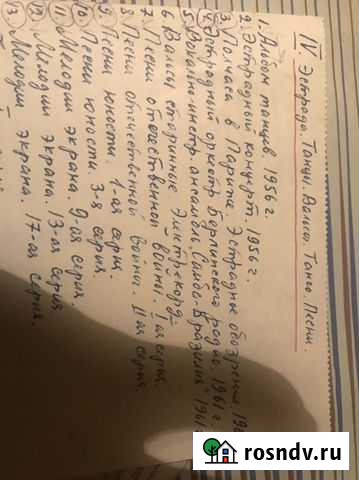 IV Эстрада. Танцы. Вальсы. Танго. Песни.
1. Альбом танцев. 1956 г.
2. Эстрадный концерт. 1956 г.
3. Полчаса в Париже. Эстрадное обозрение 19
4. Эстрадный оркестр Берлинского радио 1961 г.
5. Вокально-инстр. ансамбль "Самбо-Бразилия" 1961
6. Вальсы старинные. Электрекорд
7. Песни отечественной войны. I ая серия.
8. Песни отечественной войны. II ая серия.
9. Песни юности. 1-ая серия.
10. Песни юности. 3-я серия.
11. Мелодии экрана. 9-ая серия
12. Мелодии экрана. 13-ая серия
13. Мелодии экрана. 17-ая серия.
rosndv.ru